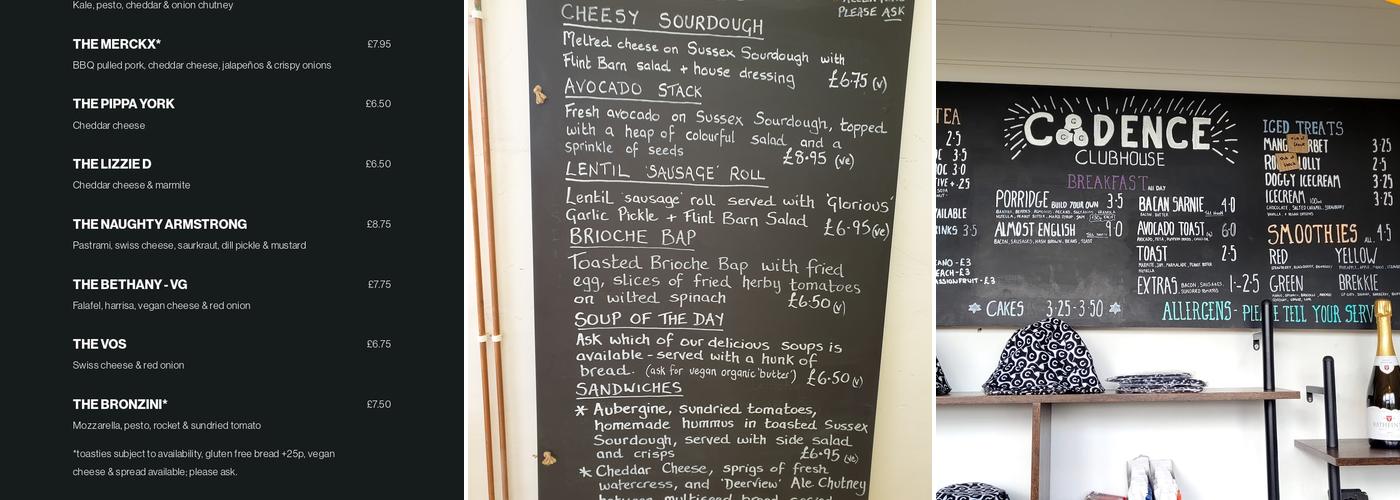 Kale, pesto, cheddar & onion chutney
THE MERCKX* £7.95
BBQ pulled pork, cheddar cheese, jalapeños & crispy onions
THE PIPPA YORK £6.50
Cheddar cheese
THE LIZZIE D £6.50
Cheddar cheese & marmite
THE NAUGHTY ARMSTRONG £8.75
Pastrami, swiss cheese, saurkraut, dill pickle & mustard
THE BETHANY - VG £7.75
Falafel, harrisa, vegan cheese & red onion
THE VOS £6.75
Swiss cheese & red onion
THE BRONZINI* £7.50
Mozzarella, pesto, rocket & sundried tomato
*toasties subject to availability, gluten free bread +25p, vegan
cheese & spread available; please ask.
PLEASE ASK
CHEESY SOURDOUGH
Melted cheese on Sussex Sourdough with
Flint Barn salad + house dressing £6.75 (v)
AVOCADO STACK
Fresh avocado on Sussex Sourdough, topped
with a heap of colourful salad and a
sprinkle of seeds £8.95 (ve)
LENTIL 'SAUSAGE' ROLL
Lentil 'sausage' roll served with 'Glorious'
Garlic Pickle + Flint Barn Salad £6.95 (ve)
BRIOCHE BAP
Toasted Brioche Bap with fried
egg, slices of fried herby tomatoes
on wilted spinach £6.50 (v)
SOUP OF THE DAY
Ask which of our delicious soups is
available - served with a hunk of
bread. (ask for vegan organic 'butter') £6.50 (v)
SANDWICHES
* Aubergine, sundried tomatoes,
homemade hummus in toasted Sussex
Sourdough, served with side salad
and crisps £6.95 (ve)
* Cheddar Cheese, sprigs of fresh
watercress, and 'Deerview' Ale Chutney
between multiseed bread served
TEA
2.5
3.5
3.0
+.25
AILABLE
RINKS 3.5
ANO - £3
EACH - £3
ASSIONFRUIT - £3
CADENCE
CLUBHOUSE
BREAKFAST ALL DAY
PORRIDGE BUILD YOUR OWN 3.5
ALMOST ENGLISH 9.0
BACON, SAUSAGES, HASH BROWN, BEANS, TOAST
BACAN SARNIE 4.0
BACON, BUTTER
AVOCADO TOAST 6.0
TOAST 2.5
EXTRAS BACON, SAUSAGES, SUNDRIED TOMATOES 1-2.5
CAKES 3.25-3.50
ALLERGENS - PLEASE TELL YOUR SERV
ICED TREATS
MANG RBET 3.25
RO LOLLY 2.5
DOGGY ICECREAM 3.25
ICECREAM 100ml 3.25
SMOOTHIES ALL 4.5
RED YELLOW
GREEN BREKKIE